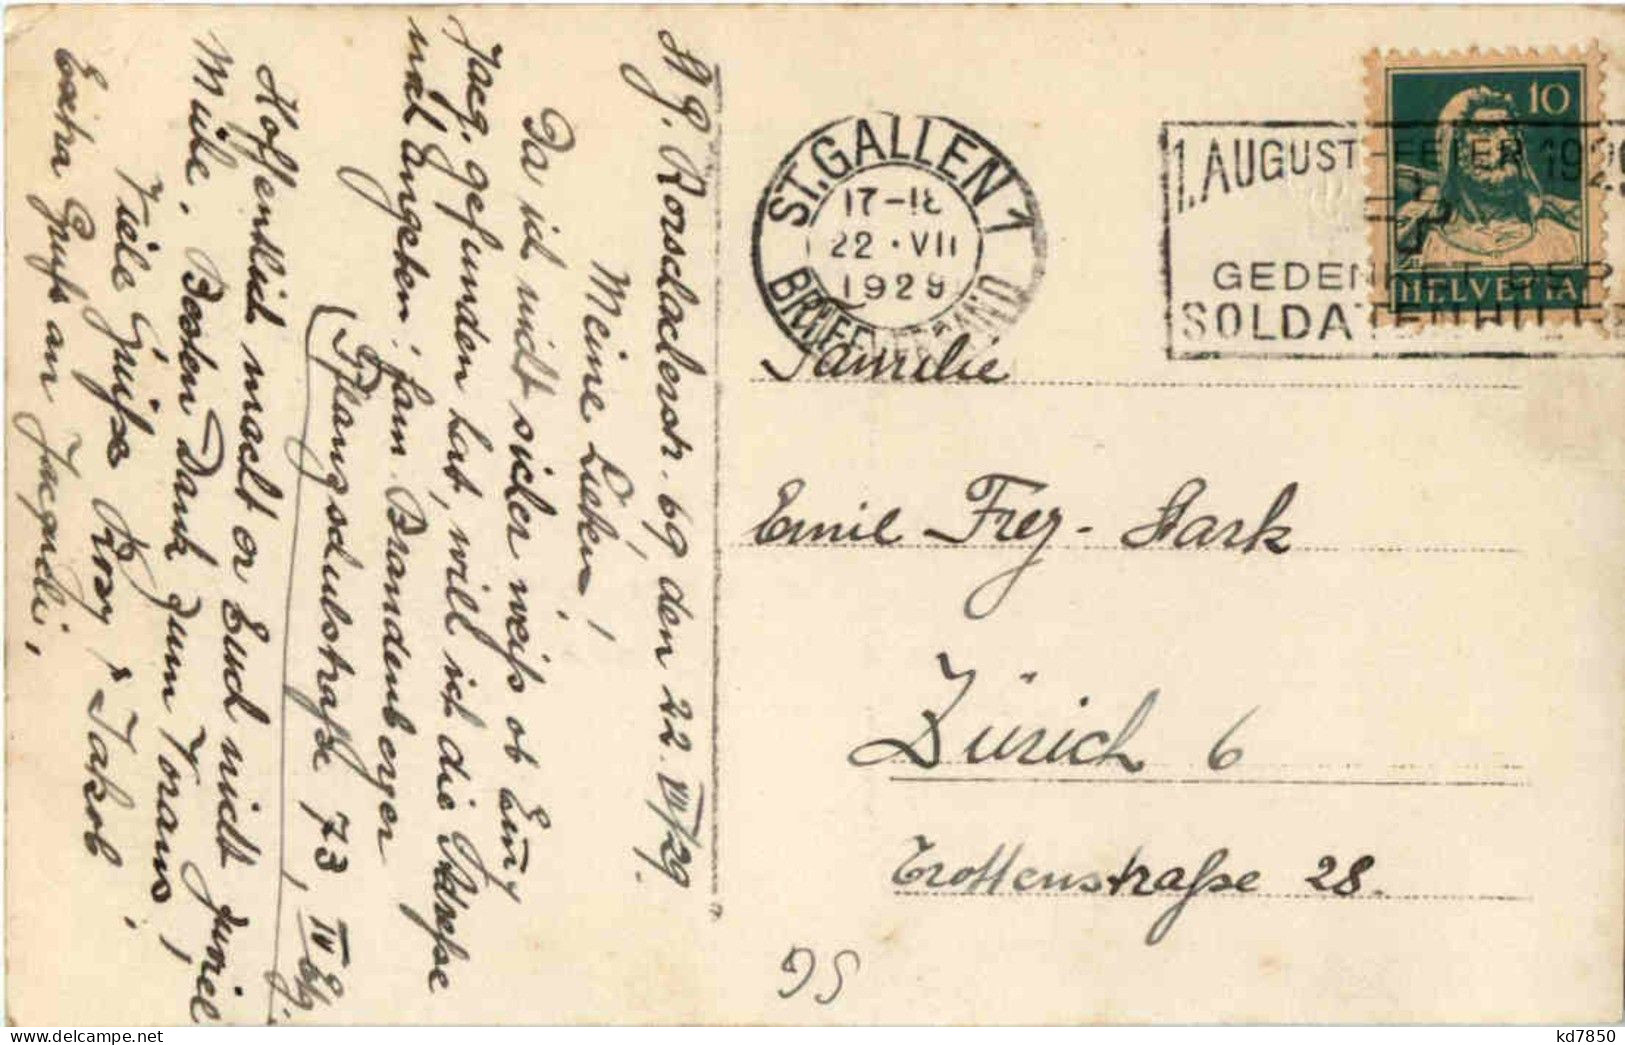 St. G. Rorschacherstr. 69, den 22. VII/29.
Meine Lieben!
Da ich nicht sicher weiss ob Euny
Jacq. gefunden hat, will ich die Adresse
noch angeben: fam. Brandenberger
(Pflanzschulstraße 73, IV Etg.
Hoffentlich macht er Euch nicht zuviel
Mühe. Besten Dank zum Voraus!
Viele Grüsse Rosy & Jakob
Extra Gruss an Jacquedi.
ST. GALLEN 1
17-18
22 · VII
1929
1. AUGUST-FEIER 1929
GEDENKET DER
SOLDATENHILFE
10
HELVETIA
Familie
Emil Frey-Stark
Zürich 6
Trottenstraße 28.
95
kd7850